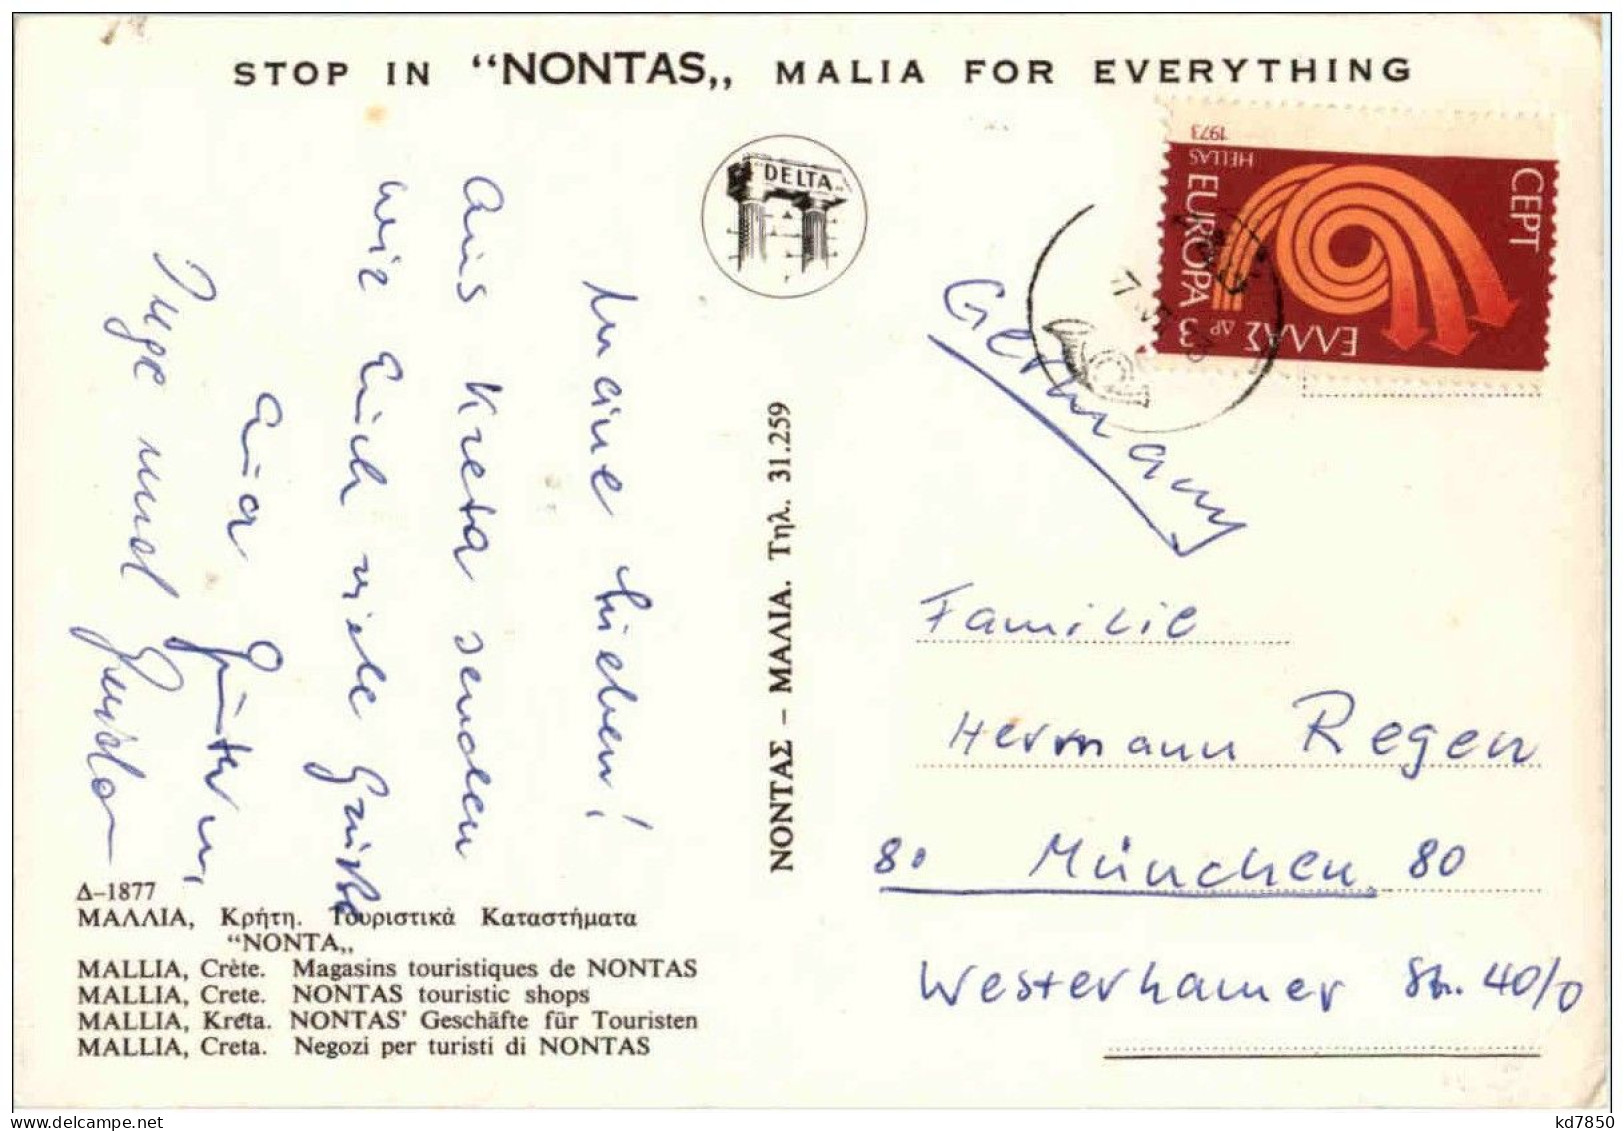 STOP IN “NONTAS„ MALIA FOR EVERYTHING
"DELTA„
1973
HELLAS
EUROPA
CEPT
ΕΛΛΑΣ ΔΡ 3
Germany
Meine Lieben!
Aus Kreta senden
wir Euch viele Grüße
Inge und
ΝΟΝΤΑΣ – ΜΑΛΙΑ. Τηλ. 31.259
Familie
Hermann Regen
80 München 80
Westerhamer Str. 40/0
Δ–1877
ΜΑΛΛΙΑ, Κρήτη. Τουριστικά Καταστήματα
“ΝΟΝΤΑ„
MALLIA, Crète. Magasins touristiques de NONTAS
MALLIA, Crete. NONTAS touristic shops
MALLIA, Kreta. NONTAS' Geschäfte für Touristen
MALLIA, Creta. Negozi per turisti di NONTAS
kd7850